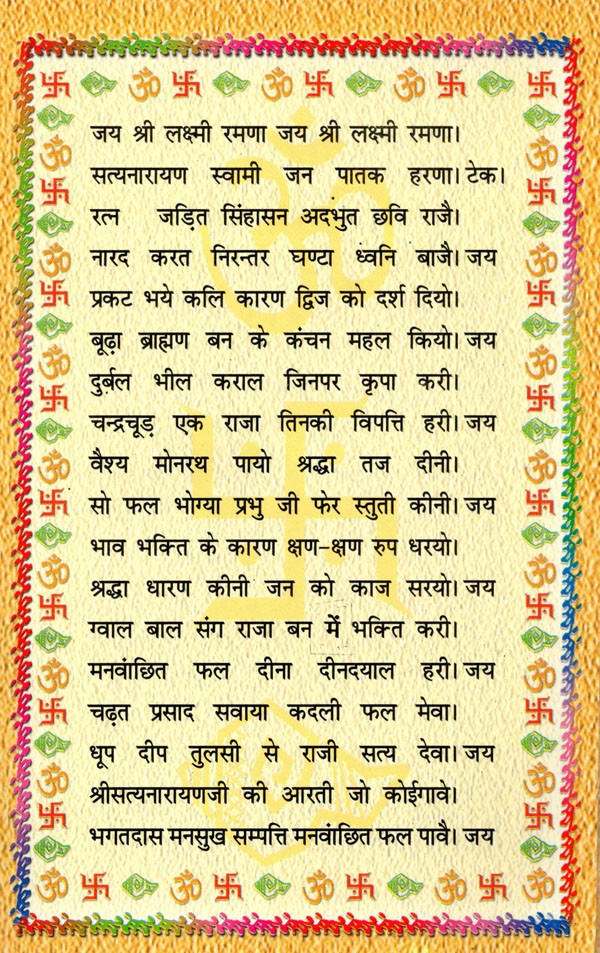 जय श्री लक्ष्मी रमणा जय श्री लक्ष्मी रमणा।
सत्यनारायण स्वामी जन पातक हरणा। टेक।
रत्न जड़ित सिंहासन अदभुत छवि राजै।
नारद करत निरन्तर घण्टा ध्वनि बाजै। जय
प्रकट भये कलि कारण द्विज को दर्श दियो।
बूढ़ा ब्राह्मण बन के कंचन महल कियो। जय
दुर्बल भील कराल जिनपर कृपा करी।
चन्द्रचूड़ एक राजा तिनकी विपत्ति हरी। जय
वैश्य मोनरथ पायो श्रद्धा तज दीनी।
सो फल भोग्या प्रभु जी फेर स्तुती कीनी। जय
भाव भक्ति के कारण क्षण-क्षण रुप धरयो।
श्रद्धा धारण कीनी जन को काज सरयो। जय
ग्वाल बाल संग राजा बन में भक्ति करी।
मनवांछित फल दीना दीनदयाल हरी। जय
चढ़त प्रसाद सवाया कदली फल मेवा।
धूप दीप तुलसी से राजी सत्य देवा। जय
श्रीसत्यनारायणजी की आरती जो कोईगावे।
भगतदास मनसुख सम्पत्ति मनवांछित फल पावै। जय